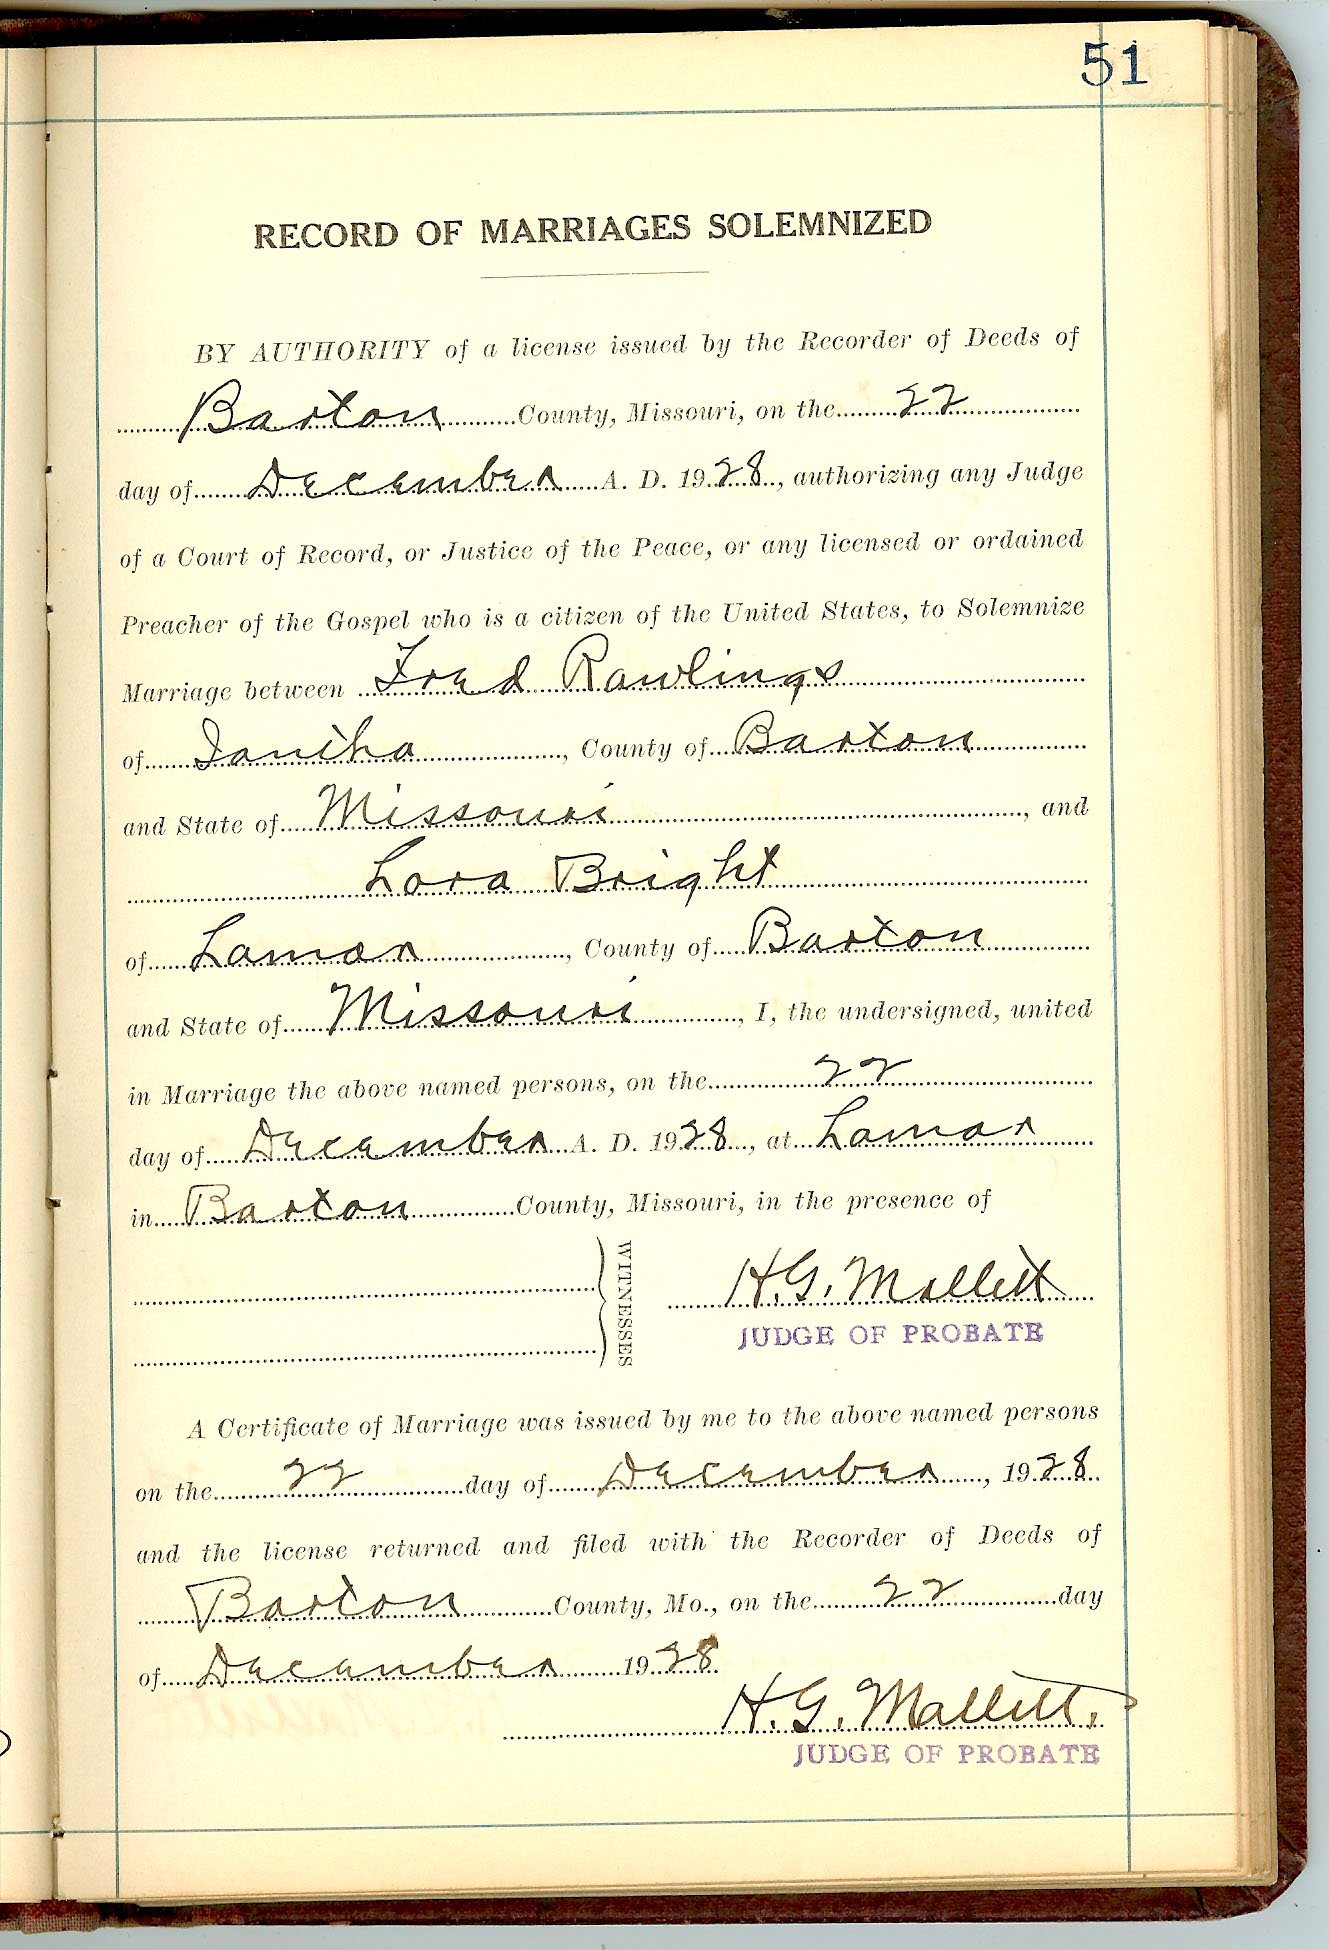 51
RECORD OF MARRIAGES SOLEMNIZED
BY AUTHORITY of a license issued by the Recorder of Deeds of
Barton County, Missouri, on the 22
day of December A. D. 1928, authorizing any Judge
of a Court of Record, or Justice of the Peace, or any licensed or ordained
Preacher of the Gospel who is a citizen of the United States, to Solemnize
Marriage between Fred Rawlings
of Iantha, County of Barton
and State of Missouri, and
Lora Bright
of Lamar, County of Barton
and State of Missouri, I, the undersigned, united
in Marriage the above named persons, on the 22
day of December A. D. 1928, at Lamar
in Barton County, Missouri, in the presence of
WITNESSES
H. G. Mallett
JUDGE OF PROBATE
A Certificate of Marriage was issued by me to the above named persons
on the 22 day of December, 1928
and the license returned and filed with the Recorder of Deeds of
Barton County, Mo., on the 22 day
of December 1928.
H. G. Mallett.
JUDGE OF PROBATE